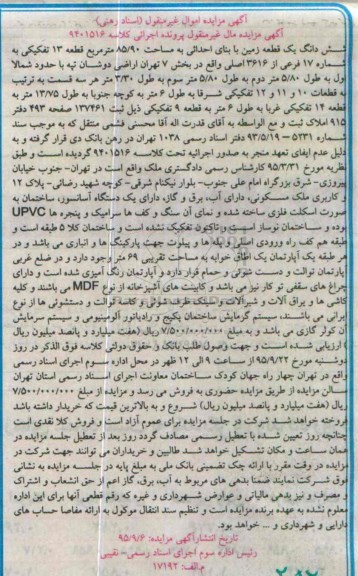 آگهی مزایده اموال غیرمنقول (اسناد رهنی)
آگهی مزایده مال غیرمنقول پرونده اجرائی کلاسه ۹۴۰۱۵۱۶
شش دانگ یک قطعه زمین با بنای احداثی به مساحت ۸۵/۹۰ مترمربع قطعه ۱۳ تفکیکی به
شماره ۱۷ فرعی از ۳۶۱۶ اصلی واقع در بخش ۷ تهران اراضی دوشان تپه با حدود شمالا
اول به طول ۵/۸۰ متر دوم به طول ۵/۸۰ متر سوم به طول ۳/۳۰ متر هر سه قسمت به ترتیب
به قطعات ۱۰ و ۱۱ و ۱۲ تفکیکی شرقا به طول ۶ متر به کوچه جنوبا به طول ۱۳/۷۵ متر به
قطعه ۱۴ تفکیکی غربا به طول ۶ متر به قطعه ۹ تفکیکی ذیل ثبت ۱۳۷۴۶۱ صفحه ۴۹۳ دفتر
۹۱۵ املاک ثبت و مع الواسطه به آقای قدرت اله آقا محسنی فشمی منتقل که به موجب سند
شماره ۵۲۳۱ – ۹۳/۵/۱۹ دفتر اسناد رسمی ۱۰۳۸ تهران در رهن بانک دی قرار گرفته و به
دلیل عدم ایفای تعهد منجر به صدور اجرائیه تحت کلاسه ۹۴۰۱۵۱۶ گردیده است و طبق
نظریه مورخ ۹۵/۳/۳۱ کارشناس رسمی دادگستری ملک واقع است در تهران- جنوب خیابان
پیروزی- شرق بزرگراه امام علی جنوب- بلوار نیکنام شرقی- کوچه شهید رضائی- پلاک ۱۲
و کاربری ملک مسکونی، دارای آب، برق و گاز، دارای یک دستگاه آسانسور، ساختمان به
صورت اسکلت فلزی ساخته شده و نمای آن سنگ و کف ها سرامیک و پنجره ها UPVC
بوده و ساختمان نوساز است و تاکنون تفکیک نشده است و ساختمان کلا ۵ طبقه است و
طبقه هم کف راه ورودی اصلی و پله ها و پیلوت جهت پارکینگ ها و انباری می باشد و در
هر طبقه یک آپارتمان یک اطاق خوابه به مساحت تقریبی ۶۹ متر وجود دارد و در ضلع غربی
آپارتمان توالت و دست شوئی و حمام قرار دارد و آپارتمان رنگ آمیزی شده است و دارای
چراغ های سقفی نو کار نیز می باشد و کابینت های آشپزخانه از نوع MDF می باشند و کلیه
کاشی ها و یراق آلات و شیرآلات و سینک ظرف شوئی و کاسه توالت و دستشوئی ها از نوع
ایرانی می باشند، سیستم گرمایش ساختمان پکیج و رادیاتور آلومینیومی و سیستم سرمایش
آن کولر گازی می باشد و به مبلغ ۷/۵۰۰/۰۰۰/۰۰۰ ریال (هفت میلیارد و پانصد میلیون ریال
) ارزیابی شده است و جهت وصول طلب بانک و حقوق دولتی کلاسه فوق الذکر در روز
دوشنبه مورخ ۹۵/۹/۲۲ از ساعت ۹ الی ۱۲ ظهر در محل اداره سوم اجرای اسناد رسمی
واقع در تهران چهار راه جهان کودک ساختمان معاونت اجرای اسناد رسمی استان تهران
سالن مزایده از طریق مزایده حضوری به فروش می رسد و مزایده از مبلغ ۷/۵۰۰/۰۰۰/۰۰۰
ریال (هفت میلیارد و پانصد میلیون ریال) شروع و به بالاترین قیمت که خریدار داشته باشد
فروخته خواهد شد شرکت در جلسه مزایده برای عموم آزاد است و فروش کلا نقدی است
چنانچه روز تعیین شده با تعطیل رسمی مصادف گردد روز بعد از تعطیل جلسه مزایده در
همان ساعت و مکان تشکیل خواهد شد طالبین و خریداران می توانند جهت شرکت در
مزایده در وقت مقرر با ارائه چک تضمینی بانک ملی به مبلغ پایه در جلسه مزایده به نشانی
فوق شرکت نمایند ضمنا بدهی های مربوط به آب، برق، گاز اعم از حق انشعاب و اشتراک
و مصرف و نیز بدهی مالیاتی و عوارض شهرداری و غیره که رقم قطعی آنها برای این اداره
معلوم نشده به عهده برنده مزایده است و تنظیم سند انتقال موکول به ارائه مفاصا حساب های
دارایی و شهرداری و ... خواهد بود.
تاریخ انتشار آگهی مزایده: ۹۵/۹/۶
رئیس اداره سوم اجرای اسناد رسمی- نقیبی
م.الف: ۱۷۱۹۲